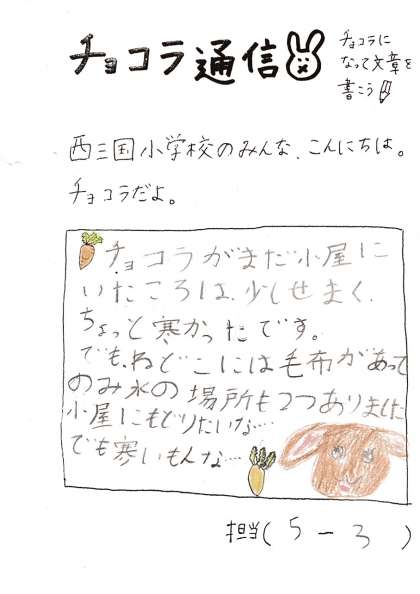 チョコラ通信
チョコラに
なって文章を
書こう
西三国小学校のみんな、こんにちは。
チョコラだよ。
チョコラがまだ小屋に
いたころは、少しせまく、
ちょっと寒かったです。
でも、ねどこには毛布があって
のみ水の場所も2つありました
小屋にもどりたいな…
でも寒いもんな…
担当(5-3)